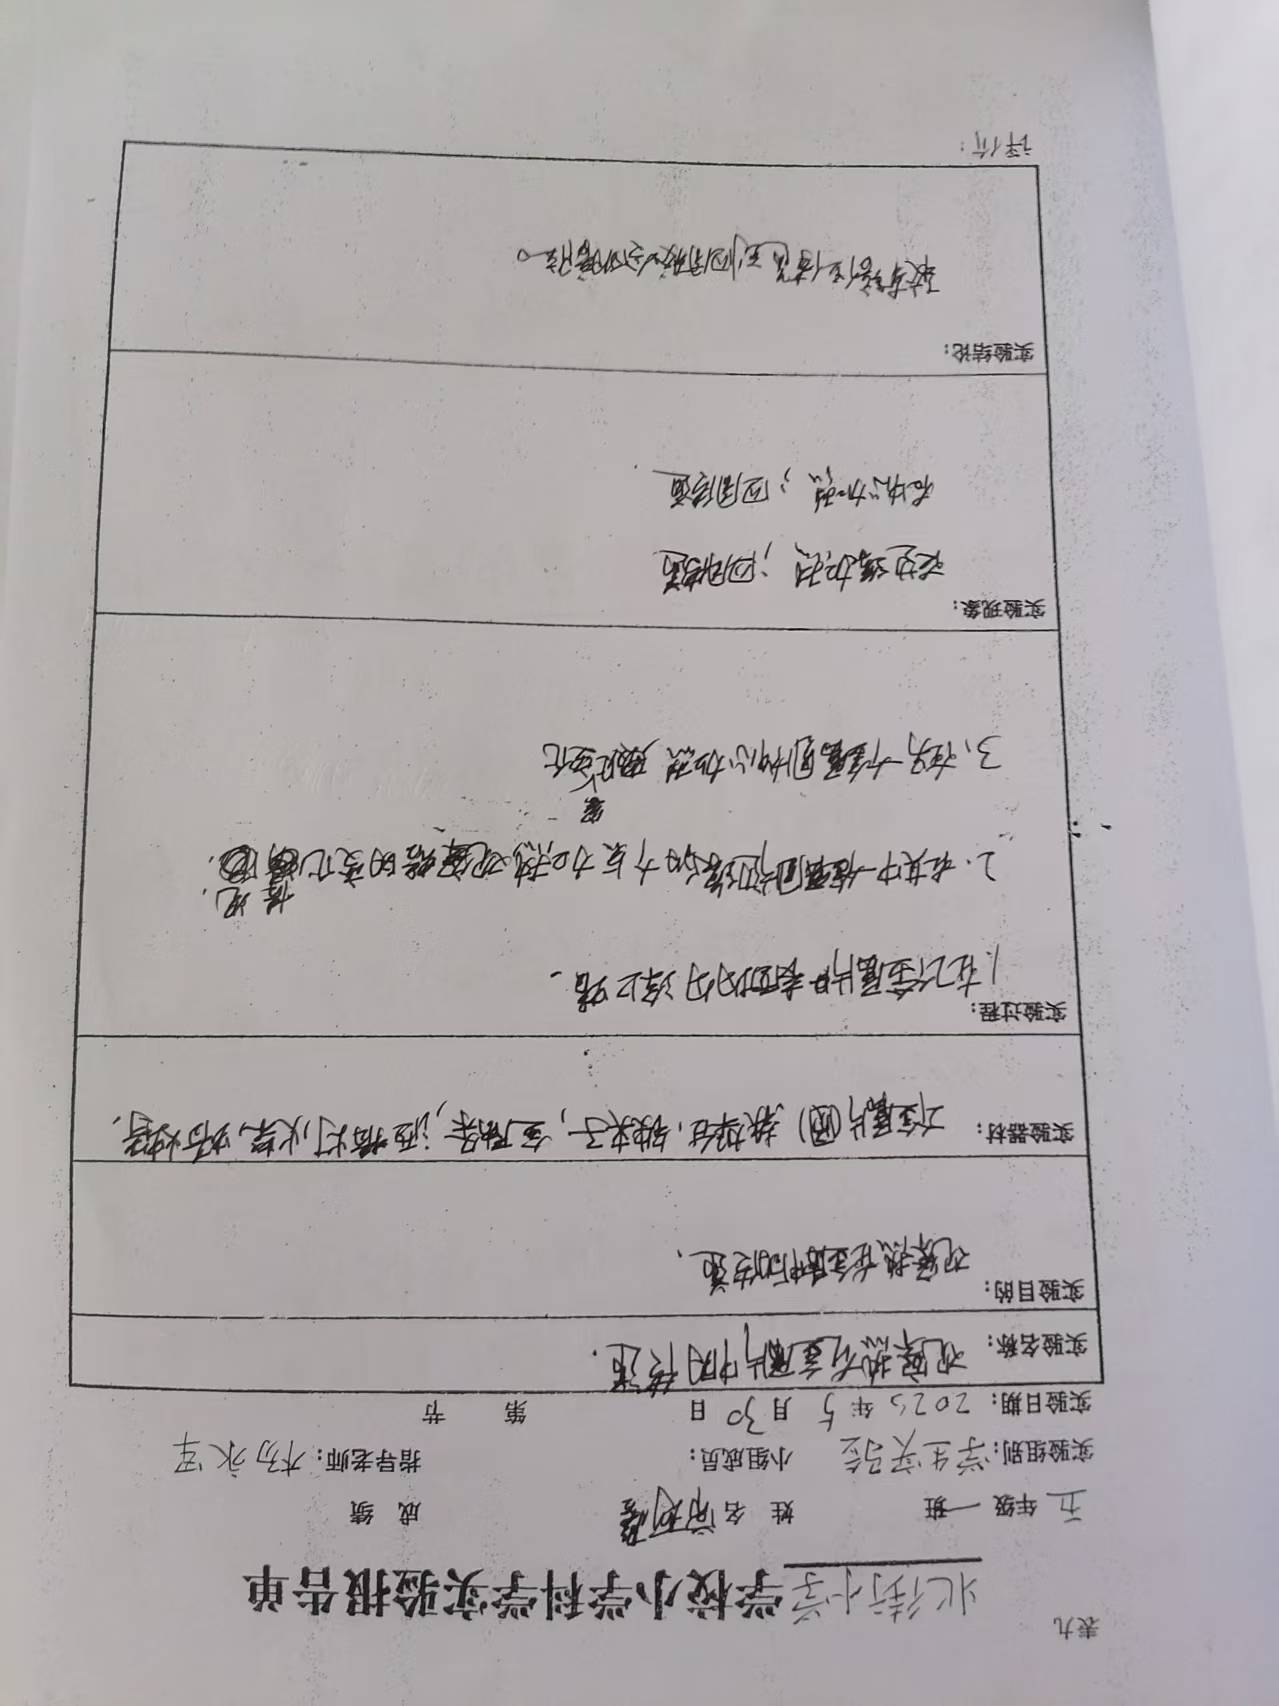 表九
北街小学学校小学科学实验报告单
五年级 一班 姓 名 成 绩
实验组别：学生实验 小组成员： 指导老师：杨永军
实验日期：2025年5月30日 第 节
实验名称：观察热在金属片中的传递.
实验目的：
观察热在金属中的传递.
实验器材：2个金属片(圆) 铁架台,铁夹子,三脚架,酒精灯,火柴,蜡烛.
实验过程：
1.在2个金属片表面均匀涂上蜡.
2.在其中一金属圆片边缘的一点加热观察蜡的变化情况.
3、在另一个金属圆片中心加热 观察变化
实验现象：
在边缘加热；向四周传递
在中心加热；向四周传递.
实验结论：
评价：